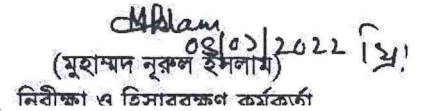 MIslam
০৪/০১/2022 খ্রি:
(মুহাম্মদ নূরুল ইসলাম)
নিরীক্ষা ও হিসাবরক্ষণ কর্মকর্তা